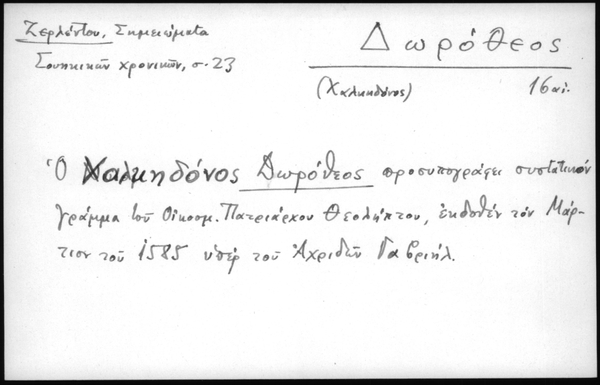 Ζερλέντου, Σημειώματα
Σουηκικῶν χρονικῶν, σ. 23
Δωρόθεος
(Χαλκηδόνος) 16 αἰ.
Ὁ Χαλκηδόνος Δωρόθεος προσυπογράφει συστατικόν
γράμμα τοῦ Οἰκουμ. Πατριάρχου Θεολήπτου, ἐκδοθέν τόν Μάρ-
τιον τοῦ 1585 ὑπέρ τοῦ Ἀχριδῶν Γαβριήλ.